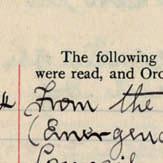 The following
were read, and Ord
From the
Emergenc